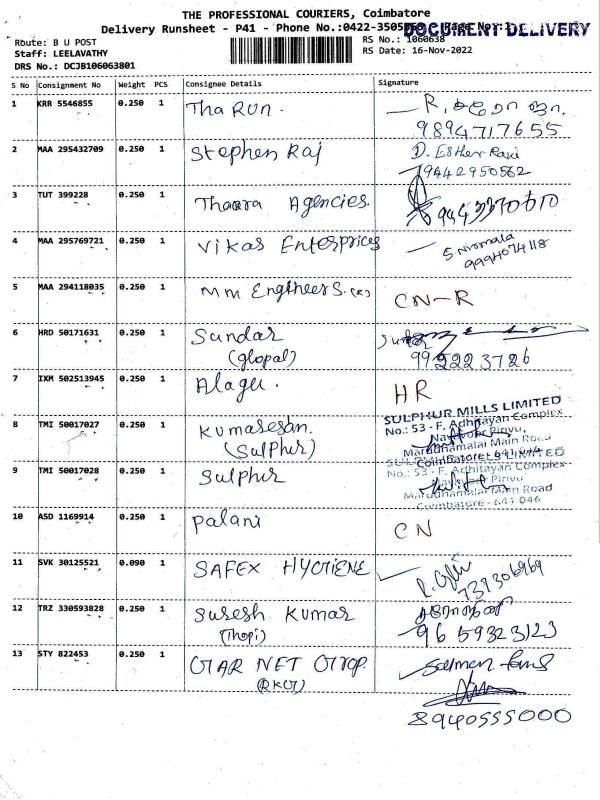 THE PROFESSIONAL COURIERS, Coimbatore
Delivery Runsheet - P41 - Phone No.:0422-3505
DOCUMENT DELIVERY
Route: B U POST
RS No.: 1060638
Staff: LEELAVATHY
RS Date: 16-Nov-2022
DRS No.: DCJB106063801
S No Consignment No Weight PCS Consignee Details Signature
1 KRR 5546855 0.250 1 Tharun. R.
9894717655
2 MAA 295432709 0.250 1 Stephen Raj D. Esther Rani
9442950562
3 TUT 399228 0.250 1 Thaara Agencies. 9443370610
4 MAA 295769721 0.250 1 Vikas Enterprices S Nirmala
9994074118
5 MAA 294118035 0.250 1 MM Engineers. (K) CN-R
6 HRD 50171631 0.250 1 Sundar
(glopal) 992223726
7 IXM 502513945 0.250 1 Alagu. HR
8 TMI 50017027 0.250 1 Kumaresan.
(Sulphur)
SULPHUR MILLS LIMITED
No.: 53 - F, Adhitayan Complex
Marudhamalai Main Road
Coimbatore - 641 046
9 TMI 50017028 0.250 1 Sulphur
SULPHUR MILLS LIMITED
No.: 53 - F, Adhitayan Complex
Marudhamalai Main Road
Coimbatore - 641 046
10 ASD 1169914 0.250 1 Palani CN
11 SVK 30125521 0.090 1 SAFEX HYGIENE
739306969
12 TRZ 330593828 0.250 1 Suresh Kumar
(Thopi) 9659323123
13 STY 822453 0.250 1 GAR NET Grop.
(RKG) Salman
8940555000